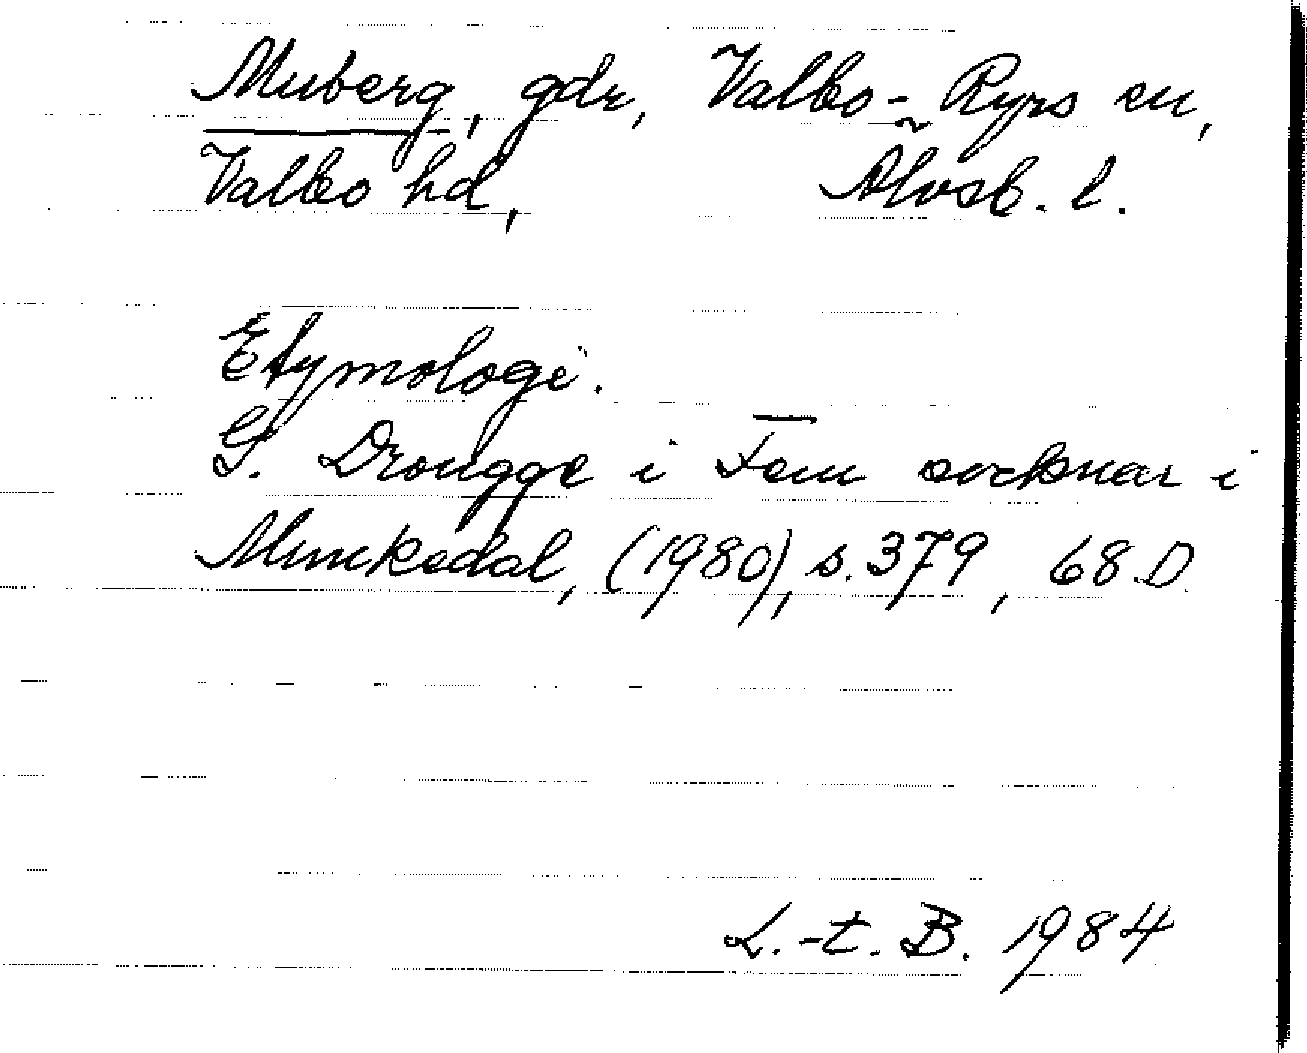 Muberg, gdr, Valbo-Ryrs sn,
Valbo hd, Älvsb. l.
Etymologi.
G. Drougge i Fem socknar i
Munkedal, (1980), s. 379, 68 D
L.-t. B. 1984